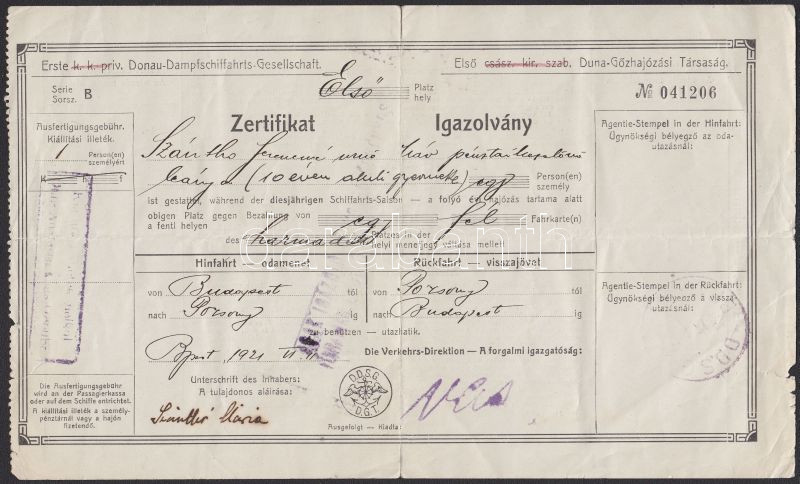 Erste k. k. priv. Donau-Dampfschiffahrts-Gesellschaft.
Első csász. kir. szab. Duna-Gőzhajózási Társaság.
Serie
Sorsz. B
Első
Platz
hely
№ 041206
Ausfertigungsgebühr.
Kiállitási illeték.
1
Person(en)
személyért
K h f
Zertifikat
Igazolvány
Szántho Ferencné
leánya (10 éven aluli gyermek) egy
Person(en)
személy
ist gestattet, während der diesjährigen Schiffahrts-Saison — a folyó évi hajózás tartama alatt
obigen Platz gegen Bezahlung von
a fenti helyen
egy fél
Fahrkarte(n)
des harmadik Platzes in der
helyi menetjegy váltása mellett
Agentie-Stempel in der Hinfahrt:
Ügynökségi bélyegző az oda-
utazásnál:
Hinfahrt — odamenet
Rückfahrt — visszajövet
von Budapest tól
nach Pozsony ig
von Pozsony tól
nach Budapest ig
zu benützen — utazhatik.
Agentie-Stempel in der Rückfahrt:
Ügynökségi bélyegző a vissza-
utazásnál:
Bpest, 1921
Die Verkehrs-Direktion — A forgalmi igazgatóság:
Die Ausfertigungsgebühr
wird an der Passagierkassa
oder auf dem Schiffe entrichtet.
A kiállitási illeték a személy-
pénztárnál vagy a hajón
fizetendő.
Unterschrift des Inhabers:
A tulajdonos aláirása:
Szánthó Mária
D.D.S.G.
D.G.T.
Ausgefolgt — Kiadta:
darabanth